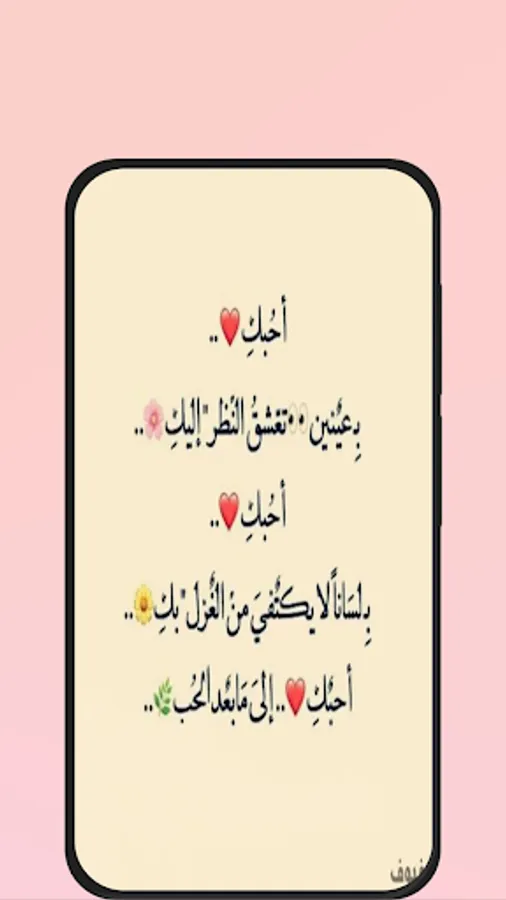 أحُبكِ❤️..
بِعيُنين👀تعَشقُ النُظر "إليَكِ🌸..
أحُبكِ❤️..
بِلسَاناً لا يكتُفيَ منْ الغُزلَ "بكِ🌼..
أحبُكِ❤️.. إلىَ مَا بعُد الحُب🌿..